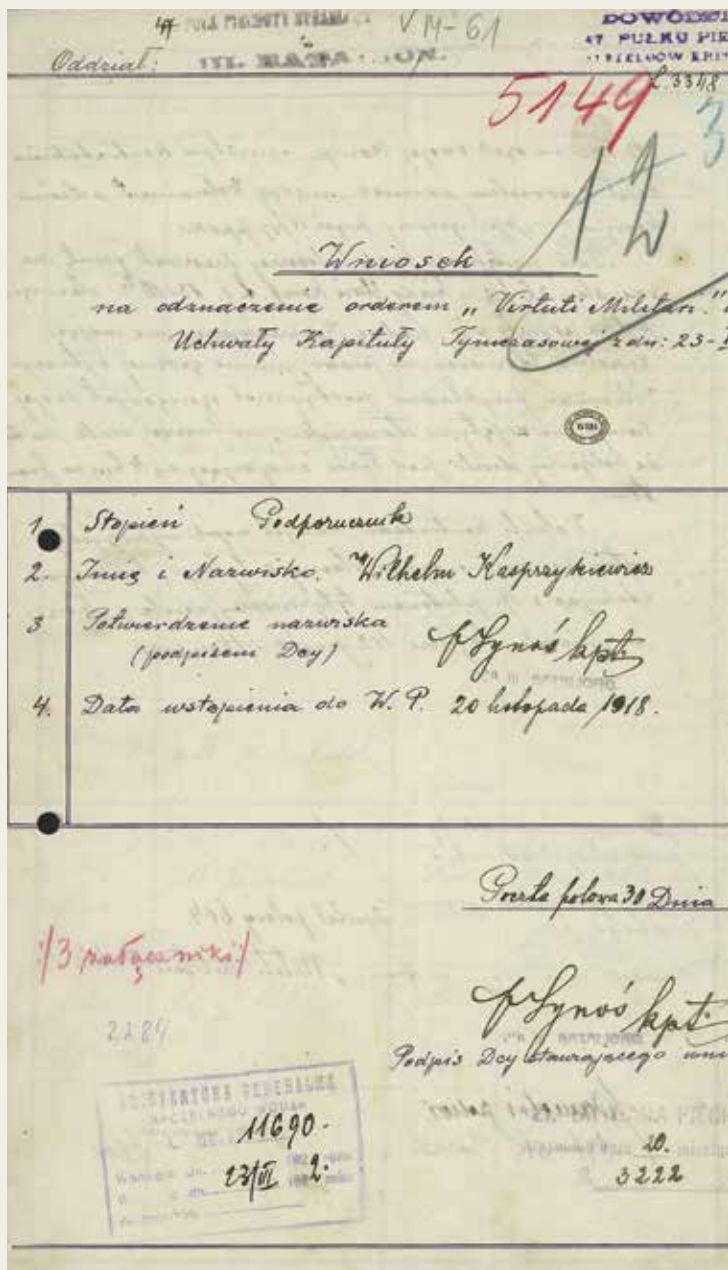 VM-61
DOWÓDZ
47 PUŁKU PIE
Oddział: III. BATA ON.
L. 3348
5149
3
12
Wniosek
na odznaczenie orderem „Virtuti Militari."
Uchwały Kapituły Tymczasowej z dn: 23-
1. Stopień Podporucznik
2. Imię i Nazwisko. Wilhelm Kasprzykiewicz
3 Potwierdzenie nazwiska
(podpisem Dcy) kpt.
4. Data wstąpienia do W. P. 20 listopada 1918.
Poczta polowa 30 Dnia
:/3 załączniki/
kpt.
2284
Podpis Dcy stawiającego wni
ADJUTANTURA GENERALNA
11690.
23/VI 2.
20.
3222